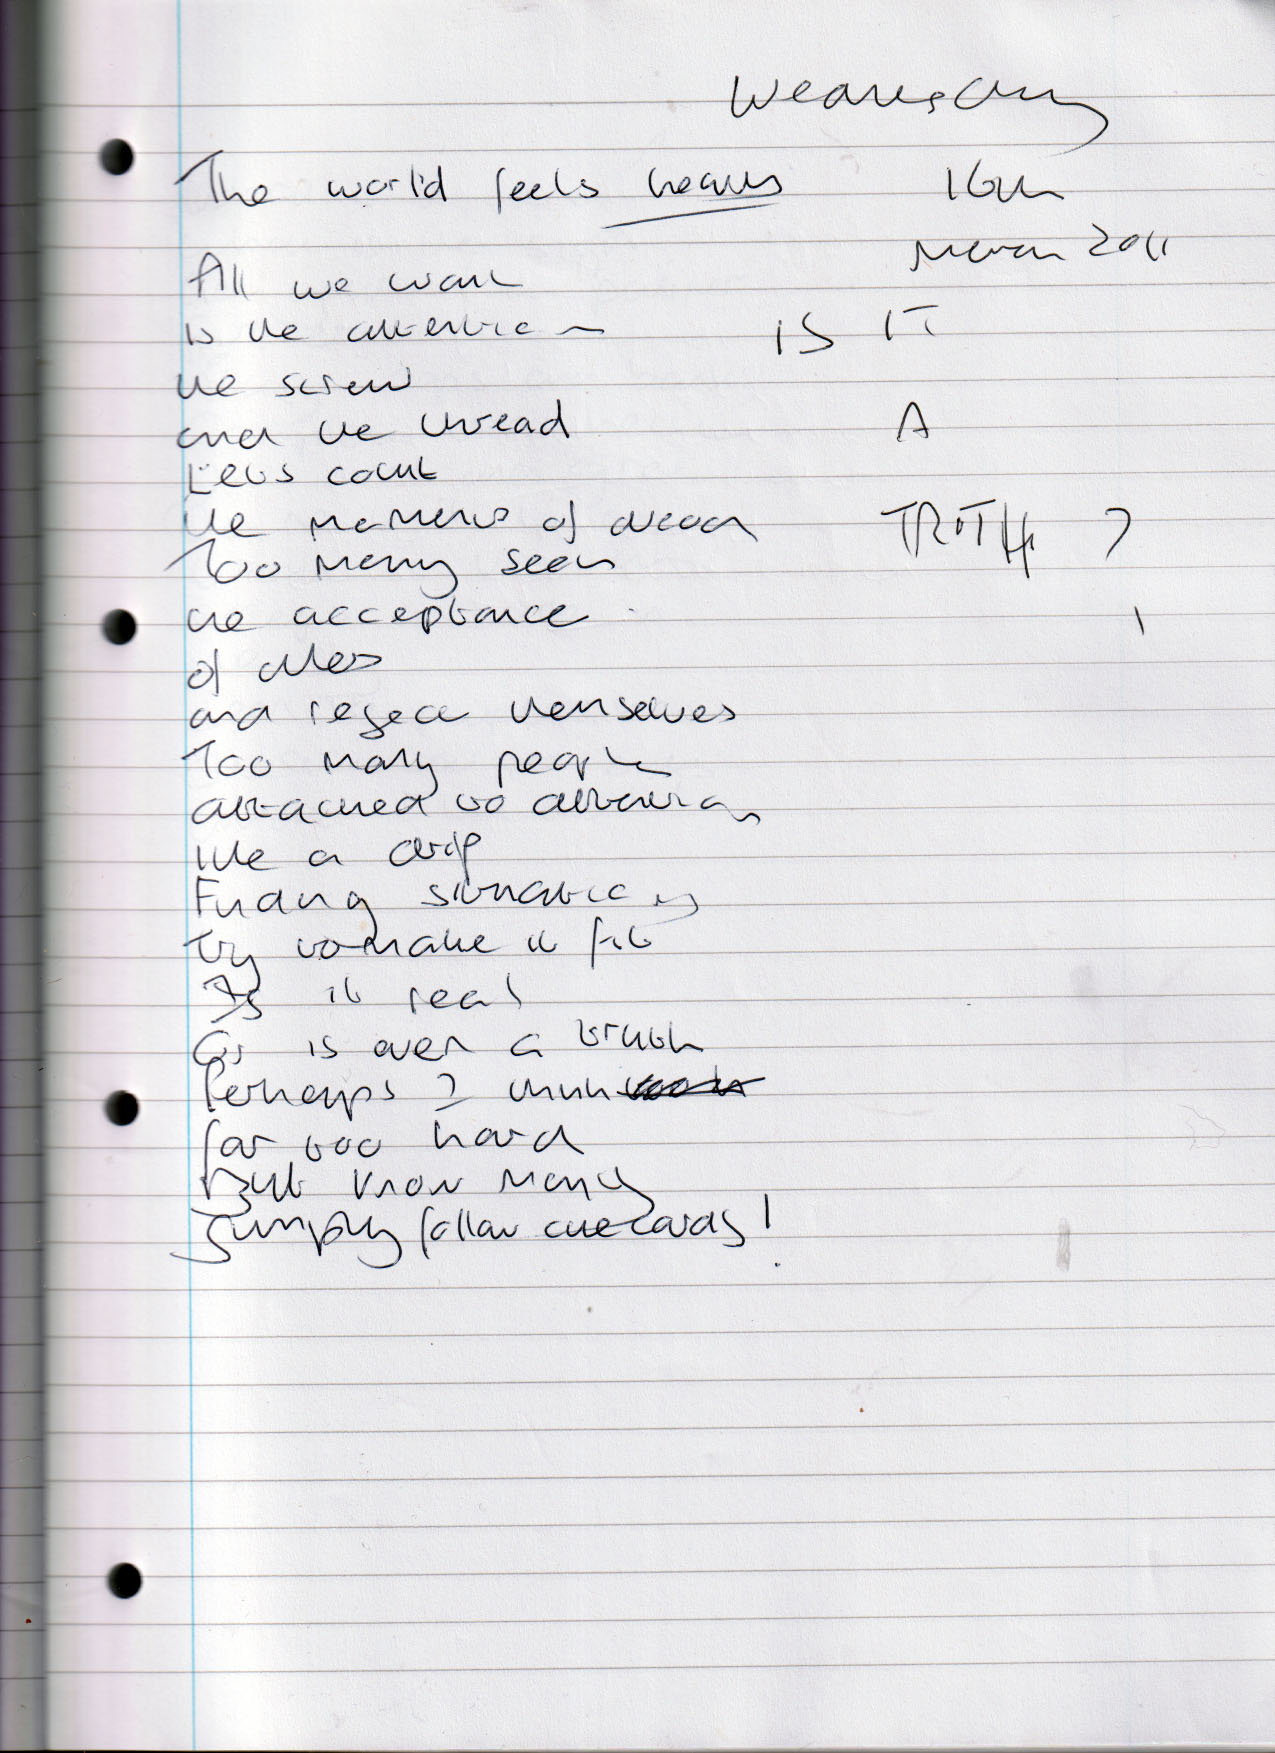 Wednesday
The world feels heavy 16th
March 2011
All we want
is the attention IS IT
the screw
and the thread A
Lets count
the moments of dread TRUTH ?
Too many seek
the acceptance
of others
and reject themselves
Too many people
attached to attention
like a drip
Finding situations
try to make it fit
Is it real
Or is even a truth
Perhaps I think
far too hard
But know many
Simply follow cuecards!